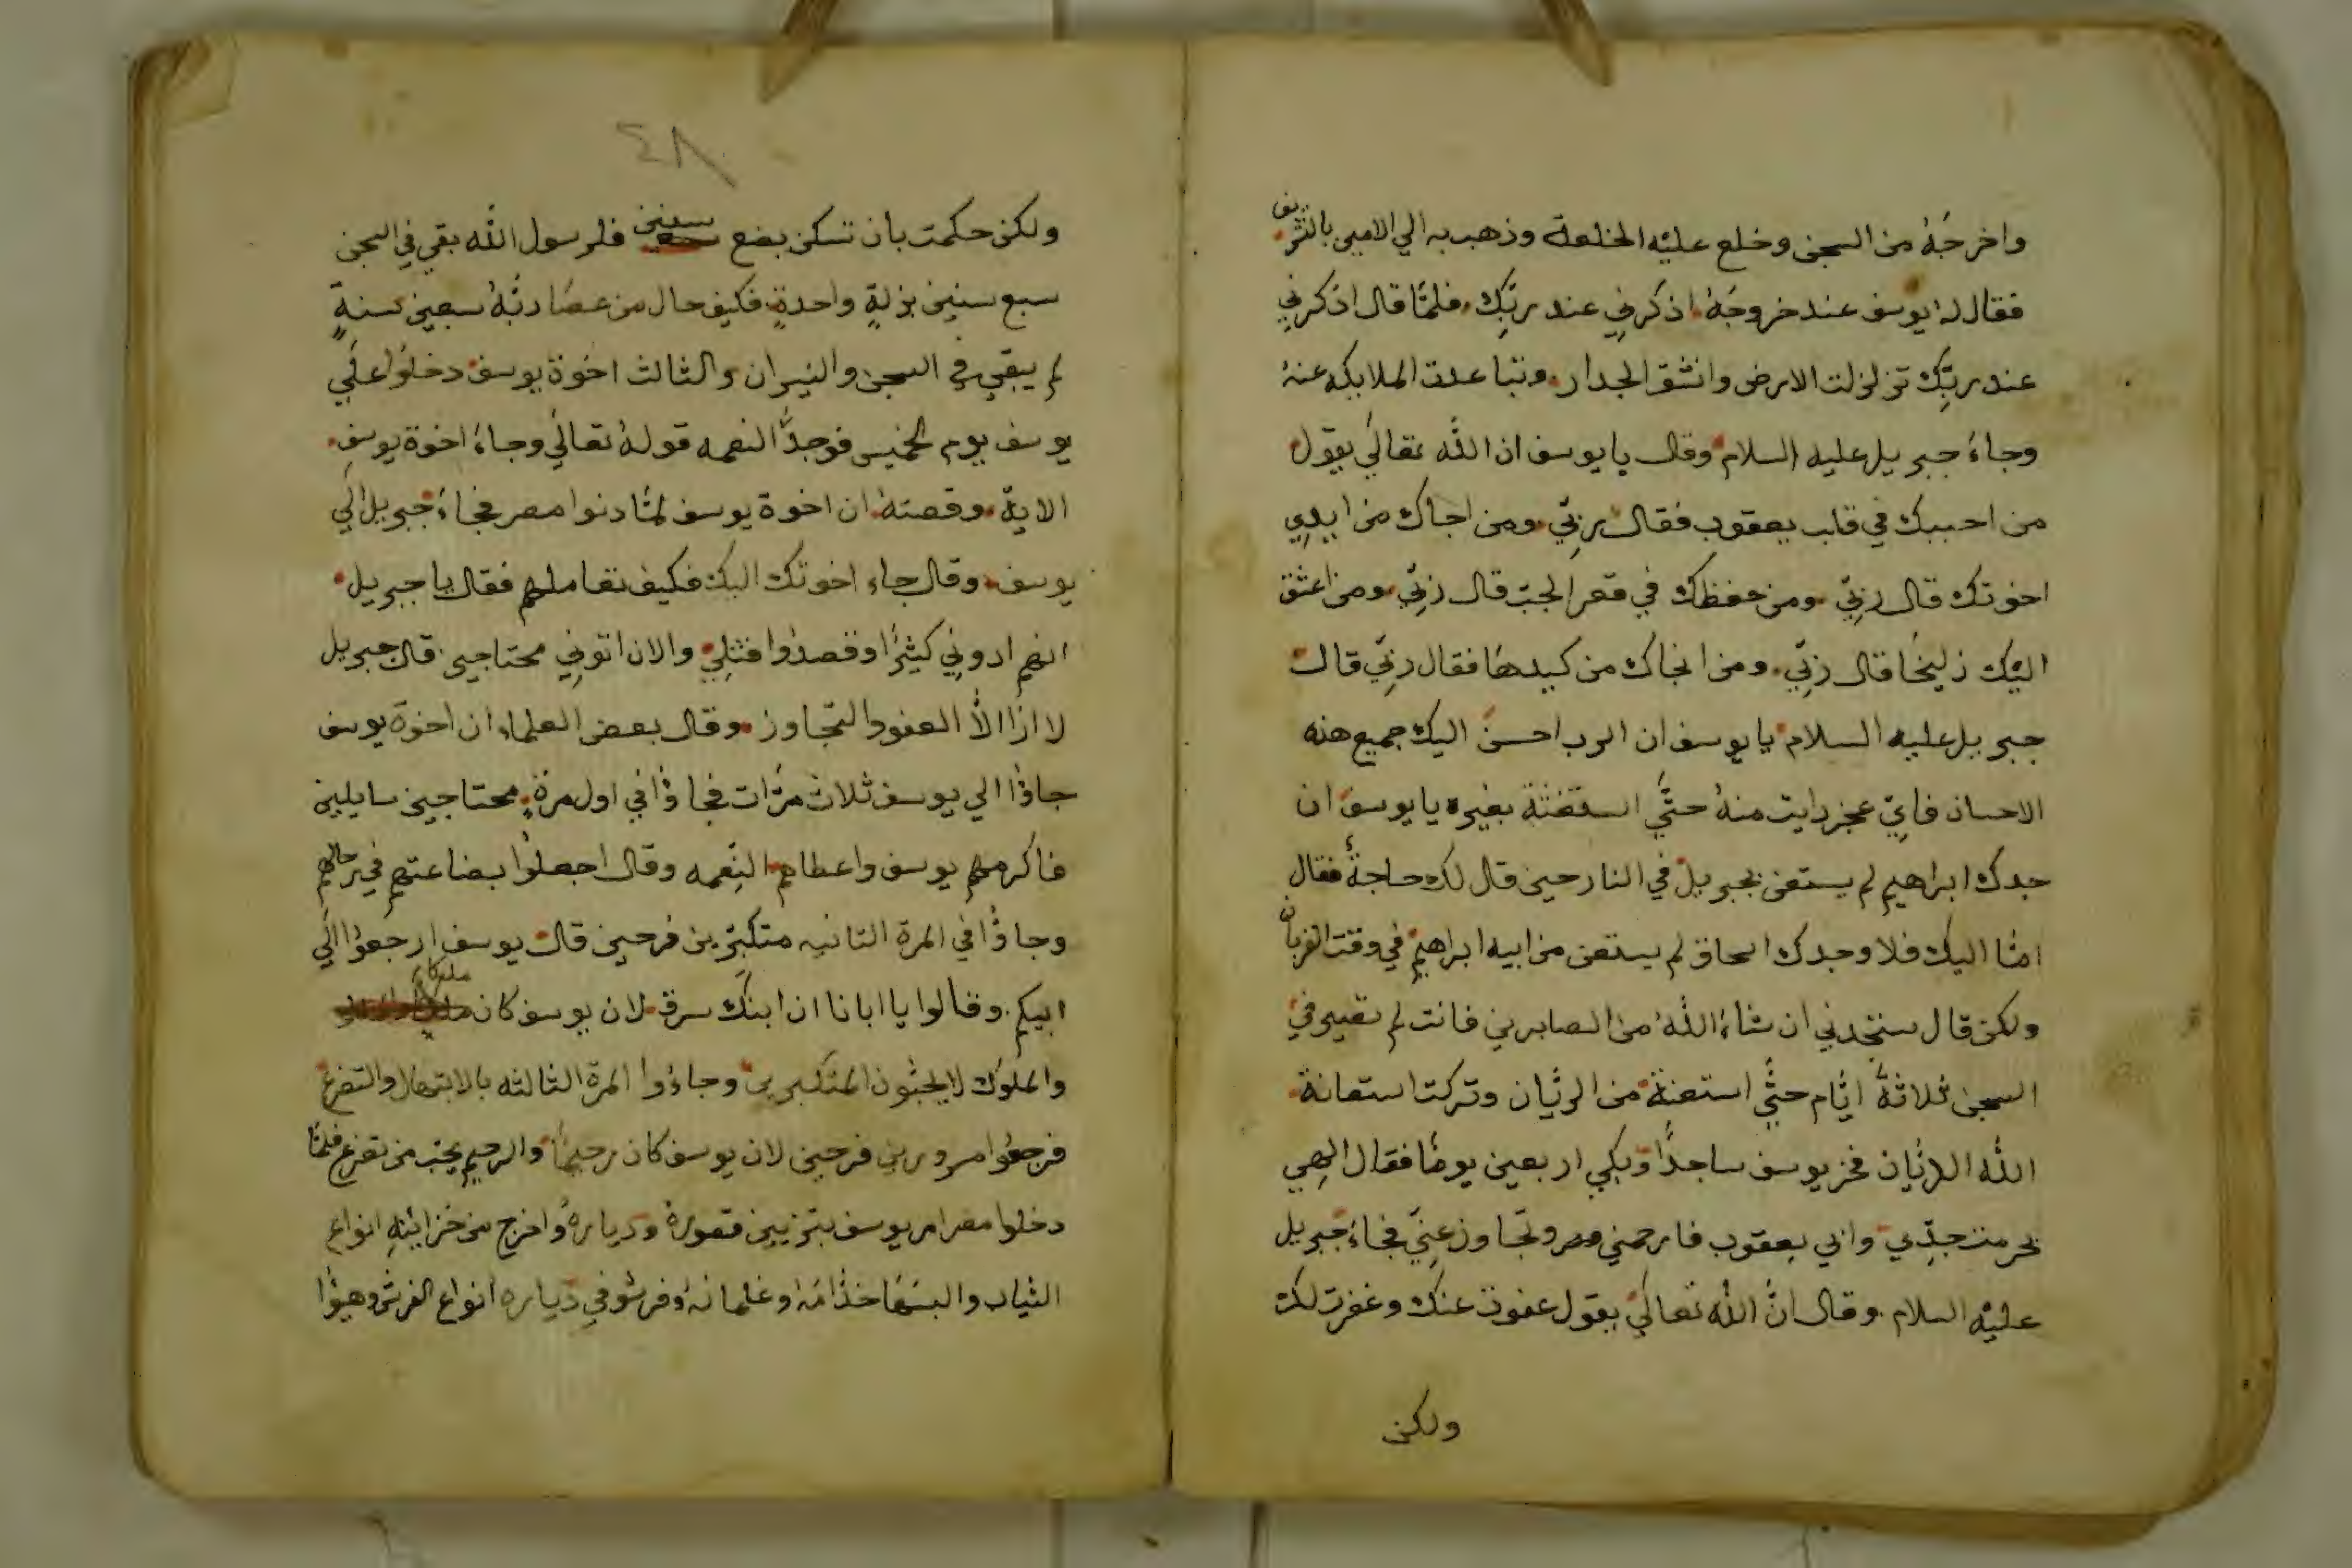 واخرجَهُ من السجن وخلع عليْه الخلعة وذهب به الي الامين بالتشريف
فقال لهُ يوسف عند خروجَهُ اذكرني عند ربِّك فلمّا قال اذكرني
عند ربِّك تزلزلت الارض وانشق الجدار وتباعدت الملايكه عنهُ
وجاءَ جبريل عليه السلام وقال يا يوسف ان اللّه تعالَي يقول
من احببك في قلب يعقوب فقال ربيّ ومن اجاك من ايدي
اخوتك قال ربيّ ومن حفظك في قعر الجبّ قال ربيّ ومن اعشق
اليْك زليخَا قال ربيّ ومن انجاك من كيدهَا فقال ربيّ قال
جبريل عليه السلام يا يوسف ان الرب احسن اليك جميع هذه
الاحسان فايّ عجز رايت منهُ حتَّي استغثتَهُ بغيره يا يوسف ان
جدك ابراهيم لم يستغن بجبريل في النار حين قال لك حاجةٌ فقال
امّا اليك فلا وجدك اسحاق لم يستغن من ابيه ابراهيم في وقت القربان
ولكن قال ستجدني ان شاءَ اللّهُ من الصابرين فانت لم تقيم في
السجن ثلاثةَ ايّام حتَّي استعنة من الريّان وتركت استعانة
اللّه الديّان فخر يوسف ساجدًا وبكي اربعين يومًا فقال الهِي
بحرمت جدِّي وابي يعقوب فارحمني وتجاوز عنيّ فجاءَ جبريل
عليْه السلام وقال انَّ اللّه تعالَي يقول عفوت عنك وغفرت لك
ولكن
٤٨
ولكن حكمت بان تسكن بضع سنين فلرسول اللّه بقي في السجن
سبع سنين بزلةٍ واحدةٍ فكيف حال من عصَا ربّهُ سبعين سنةٍ
لم يبقي في السجن والنيران والثالث اخوة يوسف دخلوا علَي
يوسف يوم الخميس فوجدُّ النعمه قولهُ تعالَي وجاءَ اخوة يوسف
الاية وقصتهُ ان اخوة يوسف لمّا دنوا مصر فجاءَ جبريل الَي
يوسف وقال جاء اخوتك اليك فكيف تعاملهم فقال يا جبريل
انهم ادوني كثيرًا وقصدوا قتلِي والان اتوني محتاجين قال جبريل
لا ازًا الاَّ العفو والتجاوز وقال بعض العلماء ان اخوة يوسف
جاؤا الي يوسف ثلاث مرّات فجاؤا في اول مرةٍ محتاجين سايلين
فاكرمهم يوسف واعطاهم النِعمه وقال اجعلوا بضاعتهم في رحالهم
وجاؤا في المرة الثانيه متكبّرين فرحين قال يوسف ارجعوا الَي
ابيكم وقالوا يا ابانا ان ابنك سرق لان يوسف كان ملكا
والملوك لا يحبّون المتكبرين وجاءُوا المرة الثالثه بالابتهال والتضرع
فرجعُوا مسرورين فرحين لان يوسف كان رحيمًا والرحيم يحب من تضرع فلمّا
دخلوا مصر امر يوسف بتزيين قصورهُ ودياره واخرج من خزائنه انواع
الثياب والبسَهَا خدّامَهُ وغلمانهُ وفرشو في دياره انواع الفرش وهيؤا